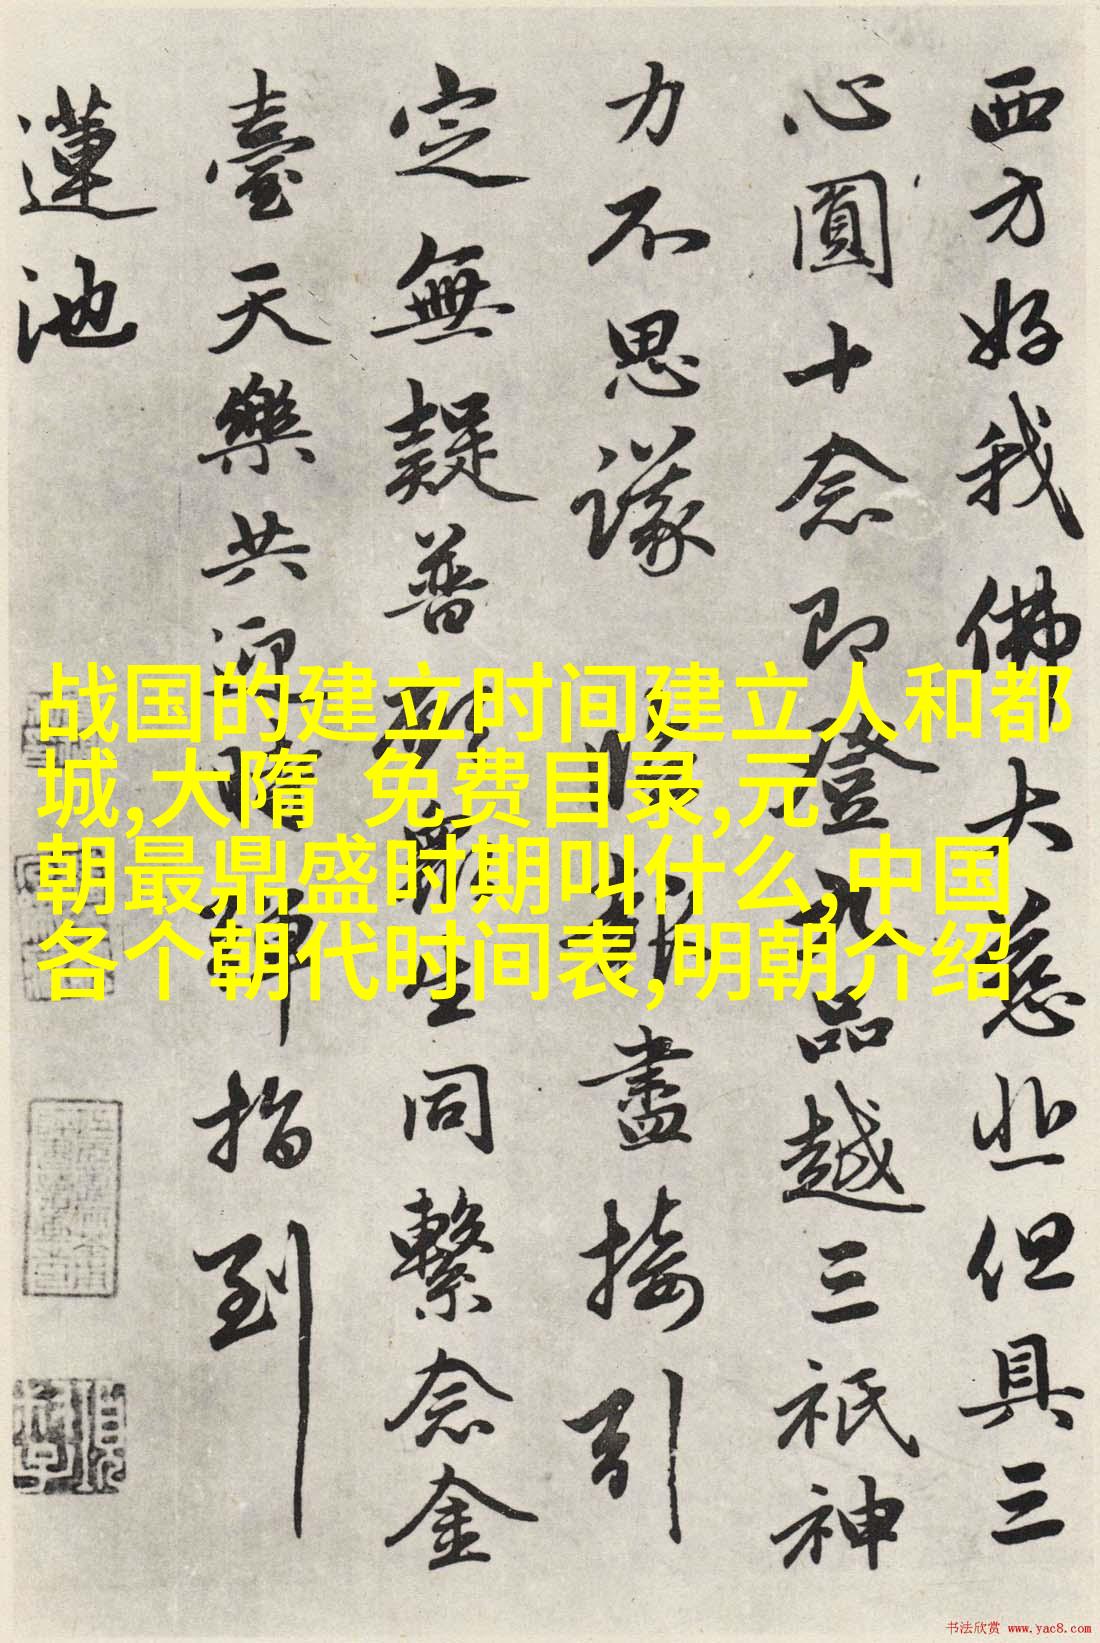 西方好我佛大慈悲但具三
心圓十念即登九品越三祇神
力不思議 盡接引
定無疑普 生同繫念金
臺天樂共迎 指到
蓮池
战国的建立时间建立人和都
城,大隋 免费目录,元
朝最鼎盛时期叫什么,中国
各个朝代时间表,明朝介绍
书法欣赏 www.yac8.com